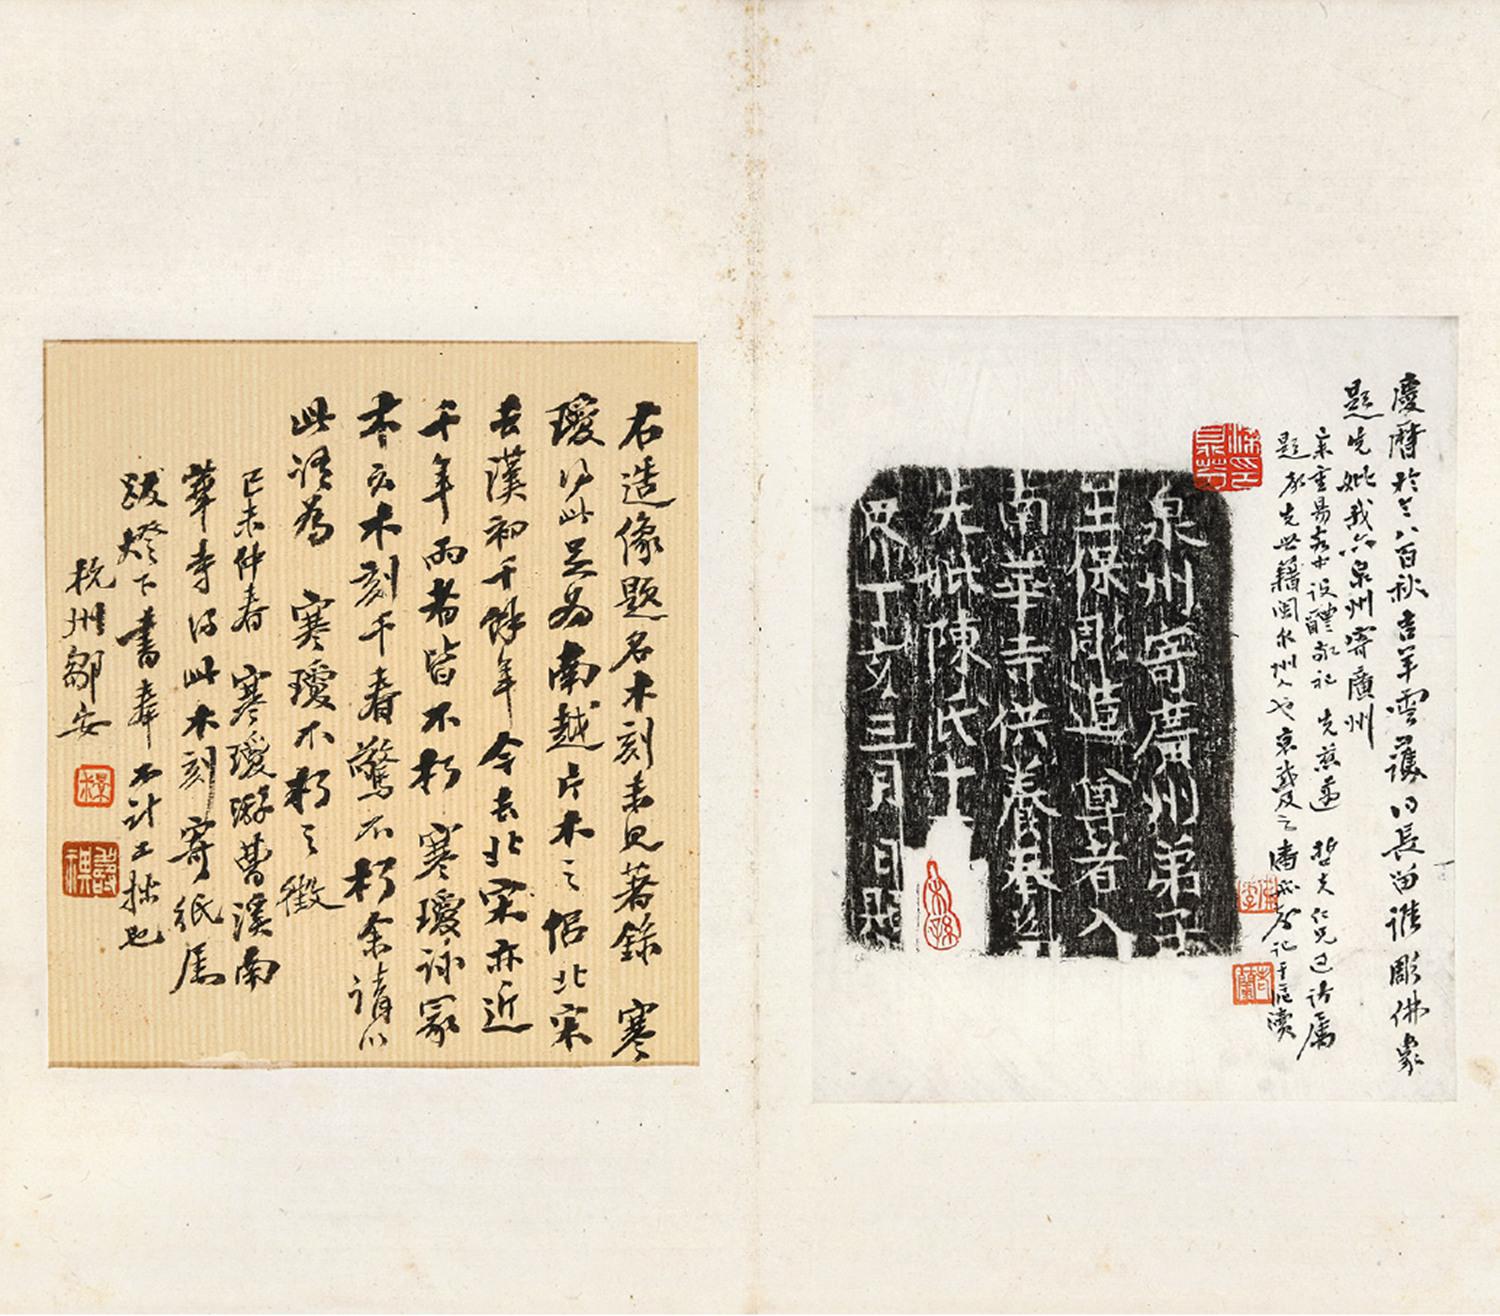 慶曆於今八百秋吉羊雲護日長留誰彫佛象
題先妣我亦泉州寄廣州
題
先世籍閩泉州人也
泉州寄廣州弟子
王保彫造尊者入
南華寺供養奉為
先妣陳氏十
界丁亥三月日題
右造像題名木刻未見著錄寒
瓊得此足為南越片木之侶北宋
去漢初千餘年今去北宋亦近
千年兩者皆不朽寒瓊詠冢
木云木刻千春驚不朽余請以
此語為寒瓊不朽之徵
己未仲春寒瓊游曹溪南
華寺得此木刻寄紙屬
跋燈下書奉不計工拙也
杭州鄒安